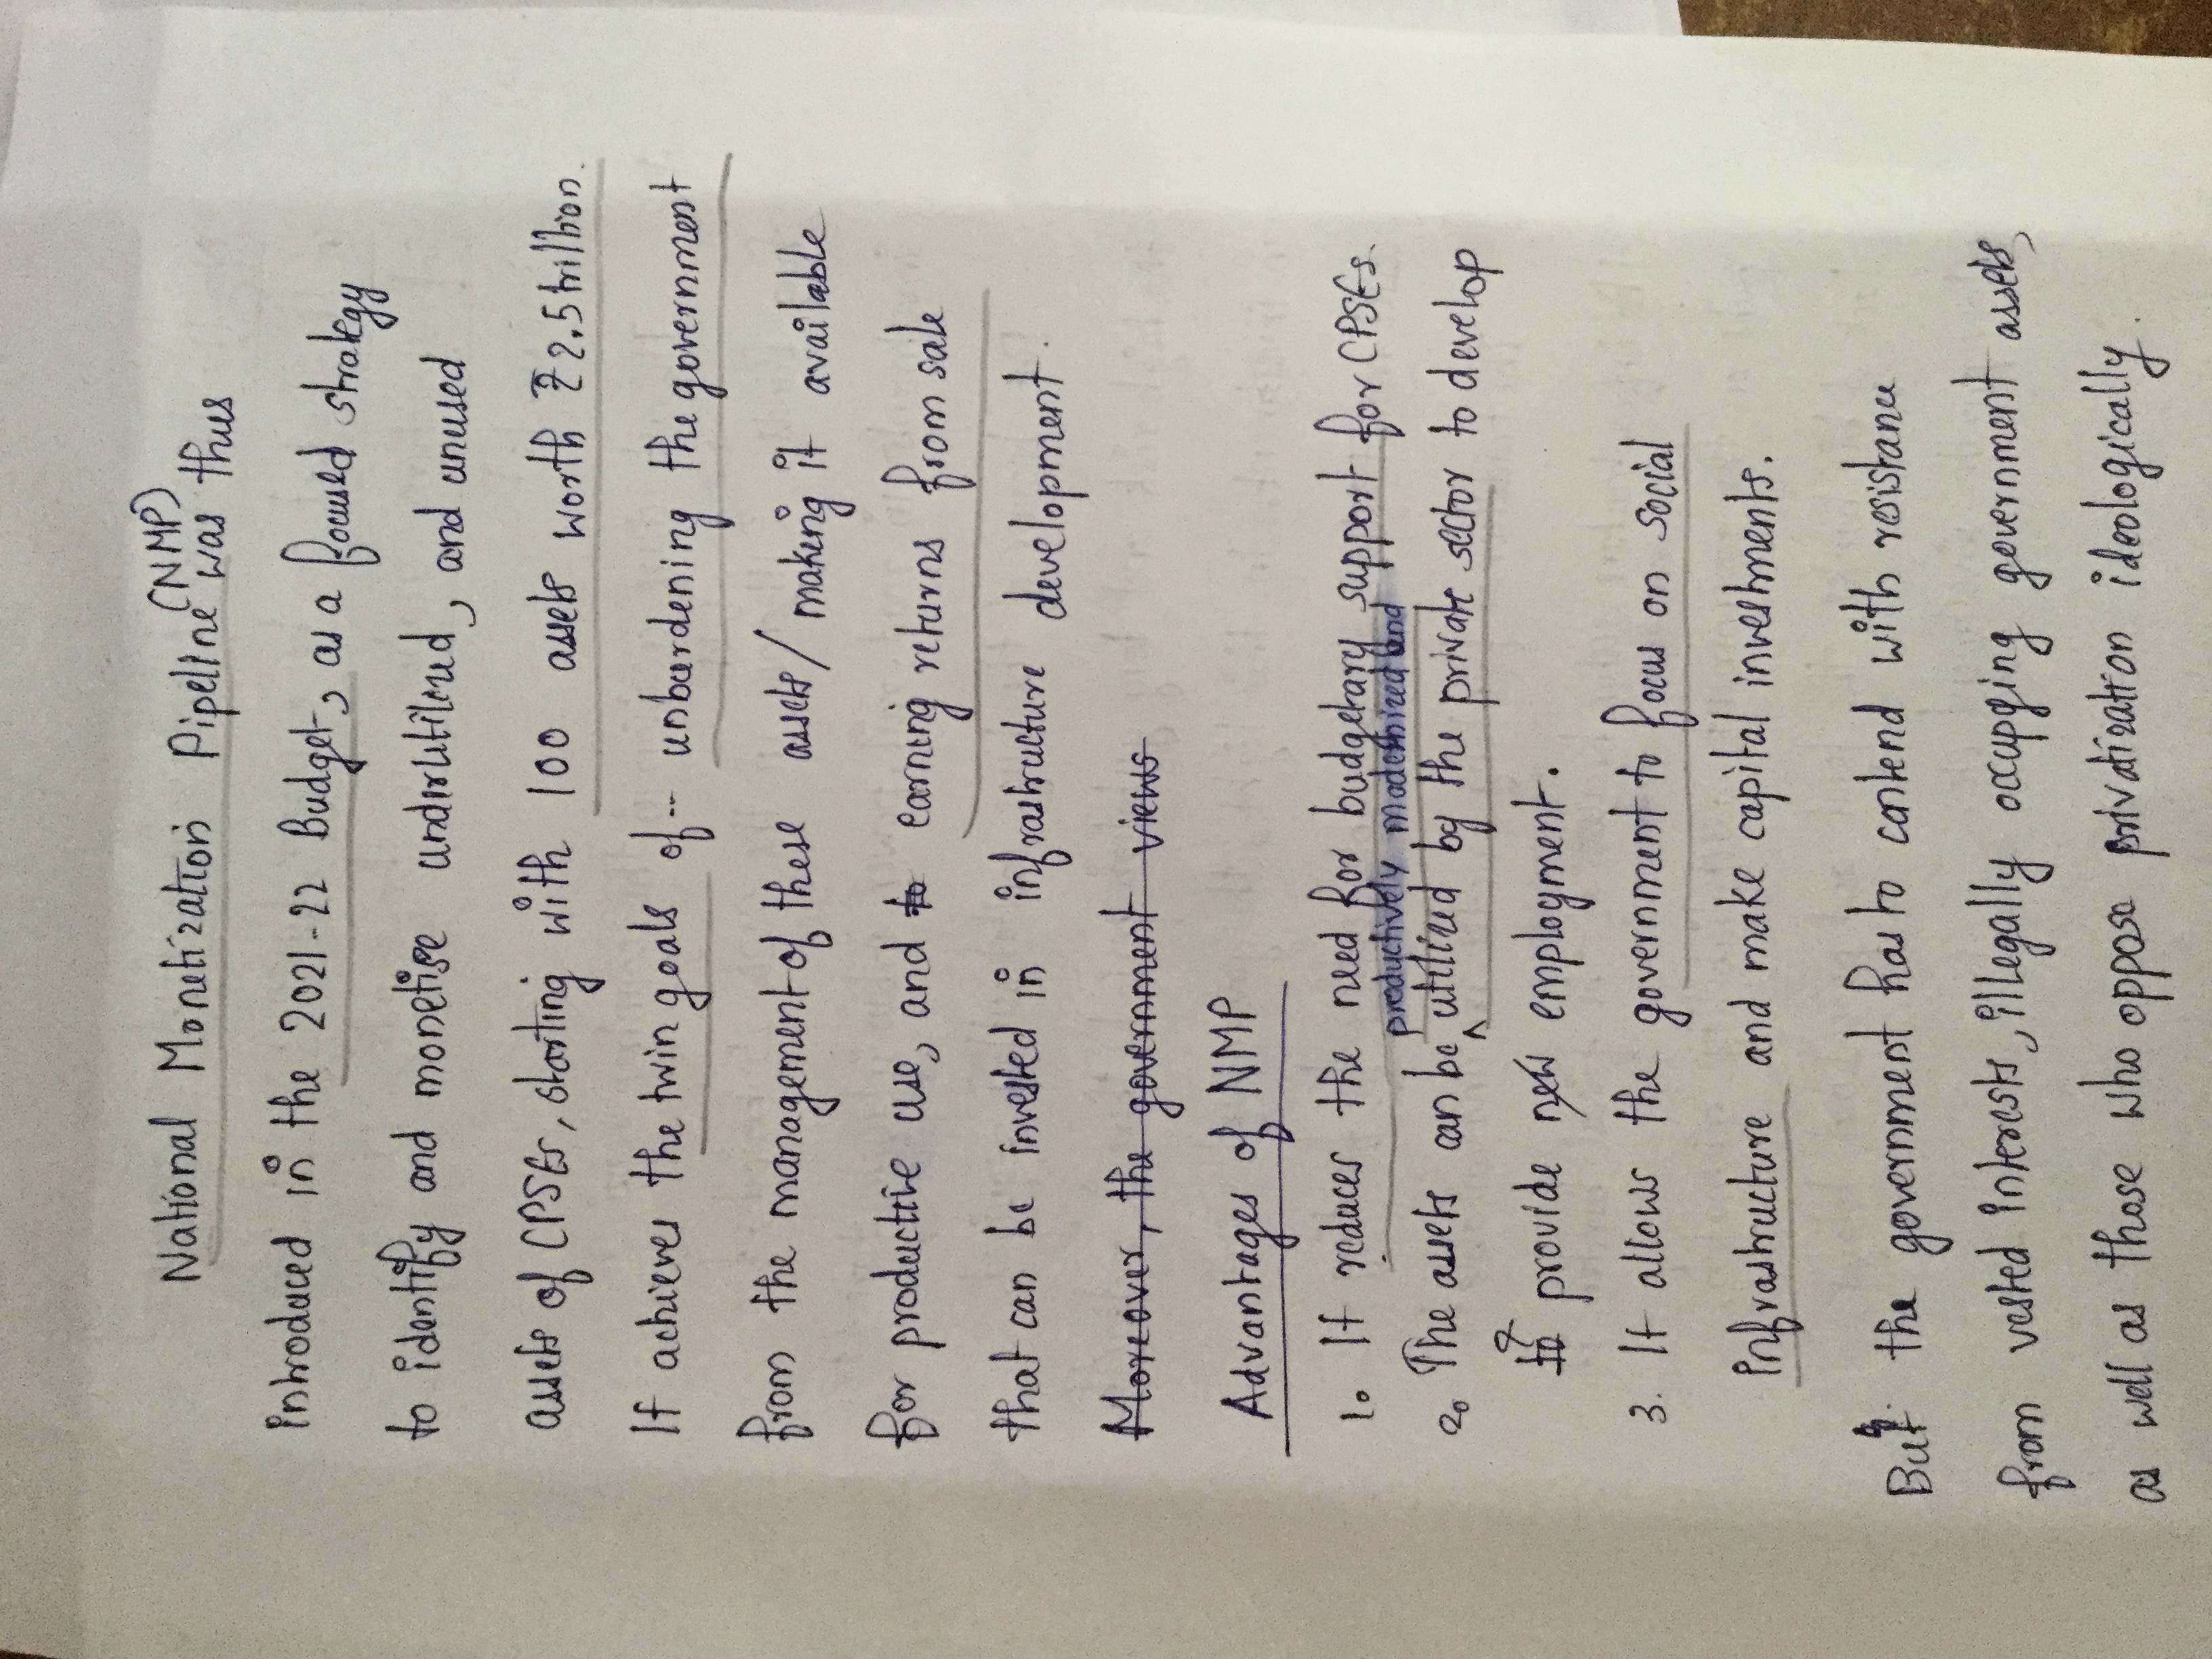 National Monetization Pipeline (NMP) was thus
introduced in the 2021-22 Budget, as a focused strategy
to identify and monetise underutilized, and unused
assets of CPSEs, starting with 100 assets worth ₹2.5 trillion.
It achieves the twin goals of -- unburdening the government
from the management of these assets / making it available
for productive use, and to earning returns from sale
that can be invested in infrastructure development.
Moreover, the government views
Advantages of NMP
1. It reduces the need for budgetary support for CPSEs.
productively modernized and
2. The assets can be utilized by the private sector to develop
to provide new employment.
3. It allows the government to focus on social
infrastructure and make capital investments.
But the government has to contend with resistance
from vested interests, illegally occupying government assets,
as well as those who oppose privatization ideologically.